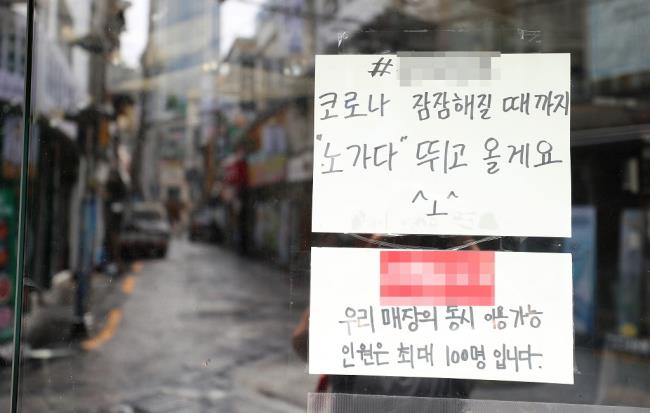 #
코로나 잠잠해질 때까지
"노가다" 뛰고 올게요
^ㅗ^
우리 매장의 동시 이용가능
인원은 최대 100명 입니다.